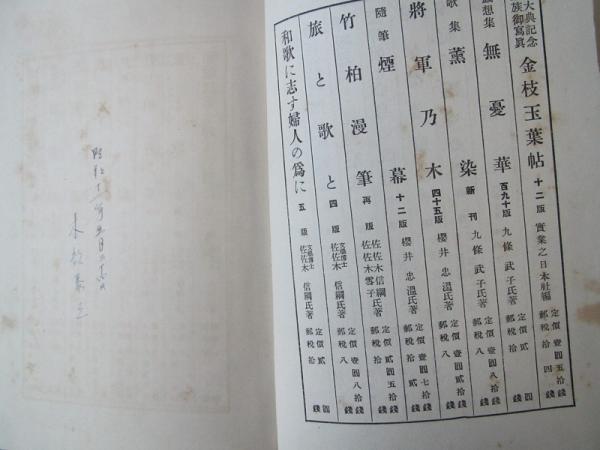 大典記念 族御寫眞 金枝玉葉帖 十二版 實業之日本社編 定價壹圓五拾錢 郵稅拾四錢
感想集 無憂華 百九十版 九條武子氏著 定價貳圓 郵稅拾四錢
歌集 薰染 新刊 九條武子氏著 定價壹圓八拾錢 郵稅八錢
將軍乃木 四十五版 櫻井忠溫氏著 定價壹圓 郵稅拾貳錢
隨筆 煙幕 十二版 櫻井忠溫氏著 定價壹圓七拾錢 郵稅拾錢
竹柏漫筆 再版 佐佐木信綱 佐佐木雪子氏著 定價貳圓五拾錢 郵稅拾錢
旅と歌と 四版 文學博士 佐佐木信綱氏著 定價壹圓八拾錢 郵稅八錢
和歌に志す婦人の爲に 五版 文學博士 佐佐木信綱氏著 定價貳圓 郵稅拾錢
昭和十二年五月二十